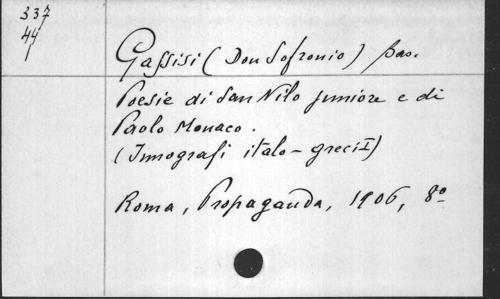 337
44
1
Gassisi (Don Sofronio)
Poesie di San Nilo juniore e di
Paolo Monaco.
(Innografi italo-greci I)
Roma, Propaganda, 1906, 8º